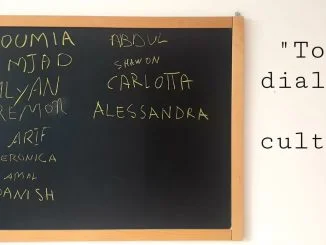 OUMIA
MJAD
LYAN
REMOR
ARIF
ERONICA
AMAL
DANISH
ABDUL
SHAWON
CARLOTTA
ALESSANDRA
"To
dial
cult